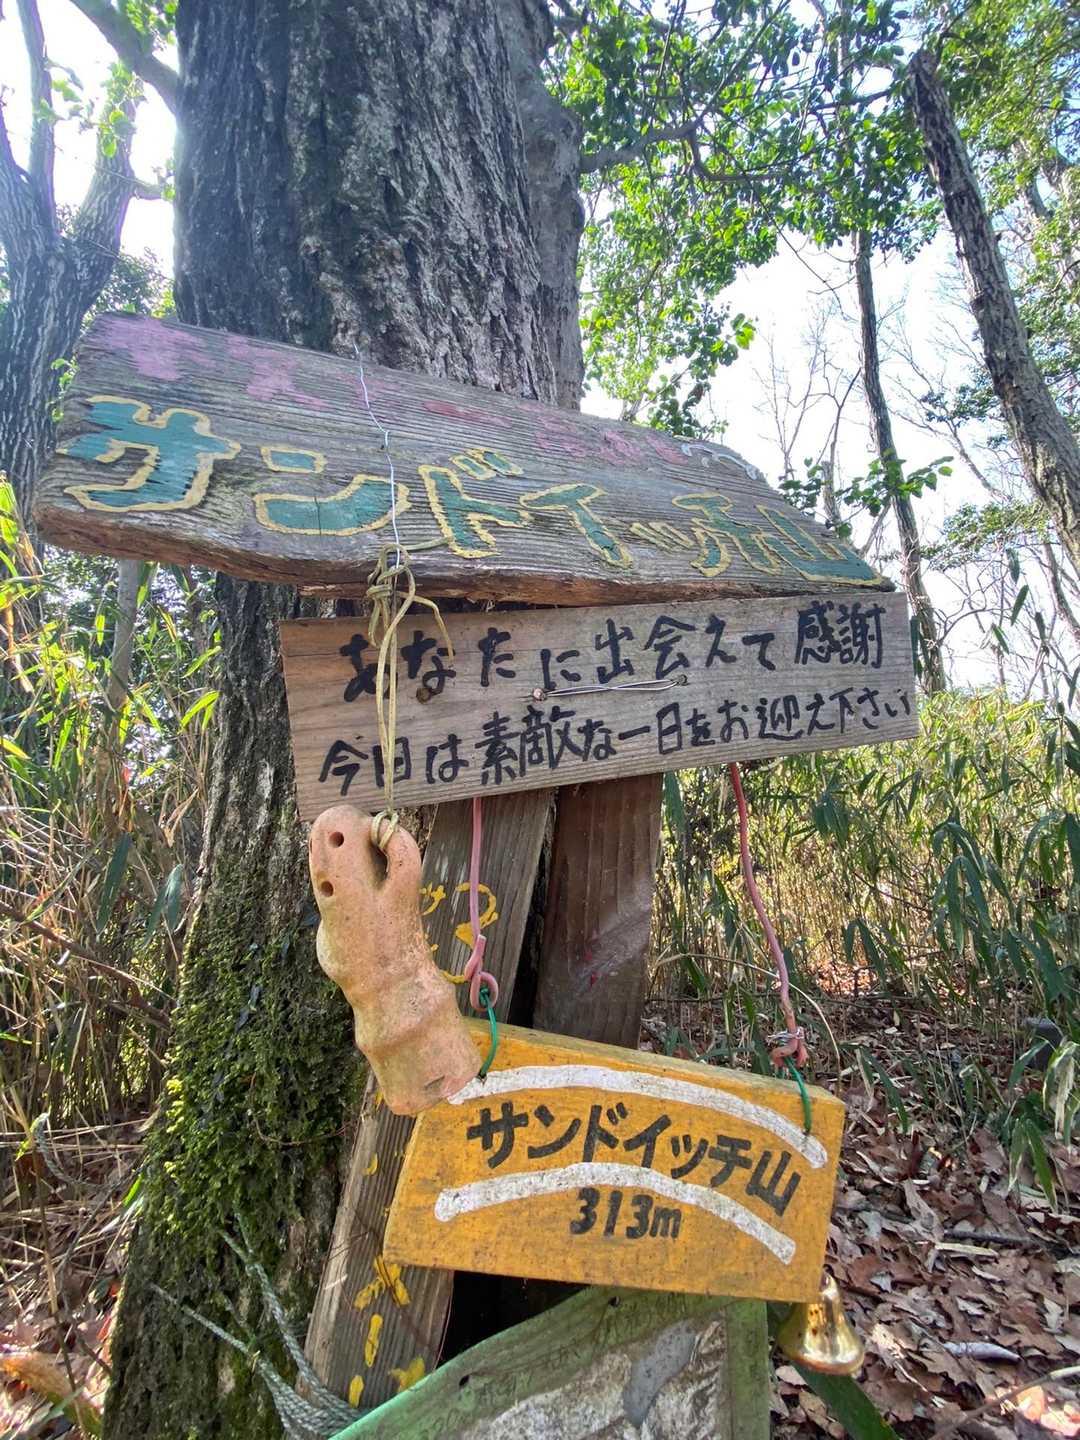 サンドイッチ山
あなたに出会えて感謝
今日は素敵な一日をお迎え下さい
サンドイッチ山
313m